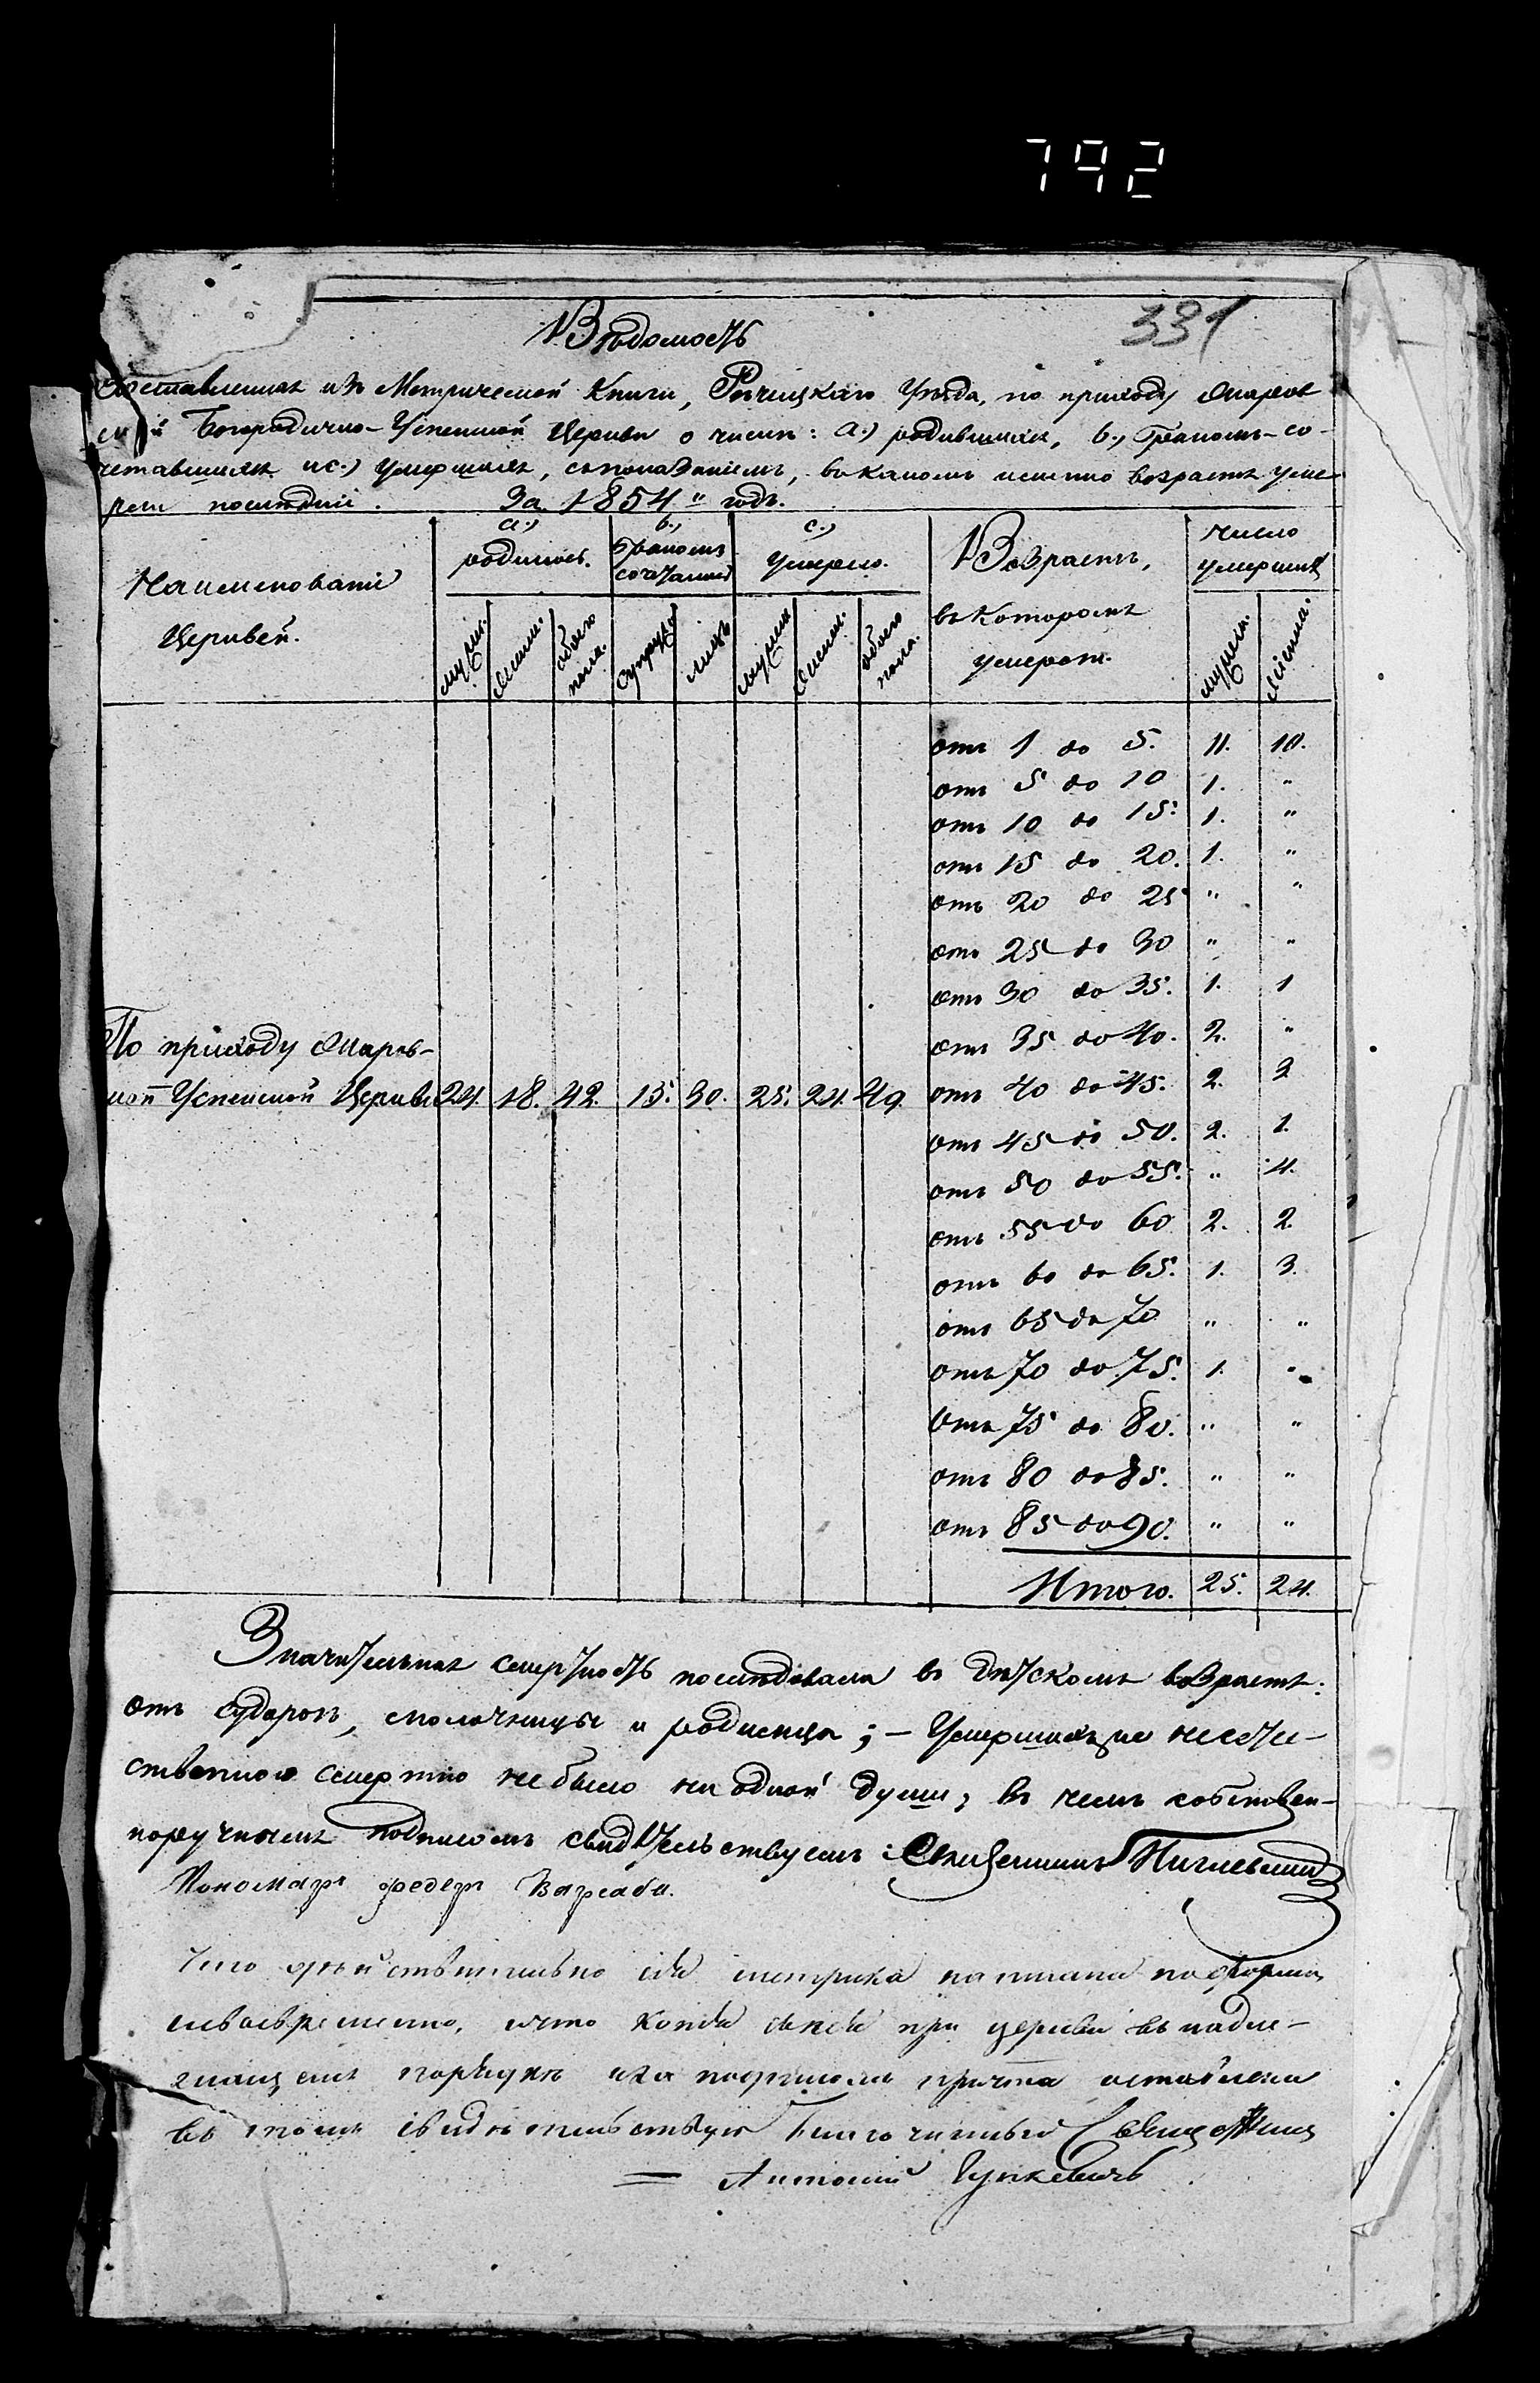 792
331
Вѣдомость
Составленная изъ Метрической Книги, Рѣчицкаго Уѣзда, по приходу
Богородично-Успенской Церкви о числѣ: a.) родившихся, b.) Бракомъ-со-
четавшихся и c.) Умершихъ, съ показаніемъ, въ какомъ именно возрастѣ уме-
рли послѣдніе. За 1854 " годъ.
Наименованіе Церквей.
a.) родилось.
b.) Бракомъ сочетались
c.) Умерло.
Возрастъ, въ которомъ умерли.
Число умершихъ
мужск. женск. обоего пола. Супруж. лицъ мужск. женск. обоего пола. мужск. женск.
отъ 1 до 5. 11. 10.
отъ 5 до 10 1. "
отъ 10 до 15. 1. "
отъ 15 до 20. 1. "
отъ 20 до 25 " "
отъ 25 до 30 " "
отъ 30 до 35. 1. 1
отъ 35 до 40. 2. "
По приходу
Успенской Церкви 24. 18. 42. 15. 30. 25. 24. 49.
отъ 40 до 45. 2. 2
отъ 45 до 50. 2. 1.
отъ 50 до 55. " 4.
отъ 55 до 60 2. 2.
отъ 60 до 65. 1. 3.
отъ 65 до 70 " "
отъ 70 до 75. 1. "
отъ 75 до 80. " "
отъ 80 до 85. " "
отъ 85 до 90. " "
Итого. 25. 24.
Значительная смертность послѣдовала въ дѣтскомъ возрастѣ:
отъ судорогъ, молочницы и родимца; - Умершихъ не есте-
ственною смертію не было ни одной души, въ чемъ собствен-
норучнымъ подписомъ свидѣтельствуемъ: Священникъ
Пономарь Федоръ
Что дѣйствительно сія метрика написана по формѣ,
своевременно, и что копія съ нея при церкви въ надле-
жащемъ порядкѣ за подписомъ причта оставлена
въ томъ свидѣтельствую Благочинный Священникъ
Антоній